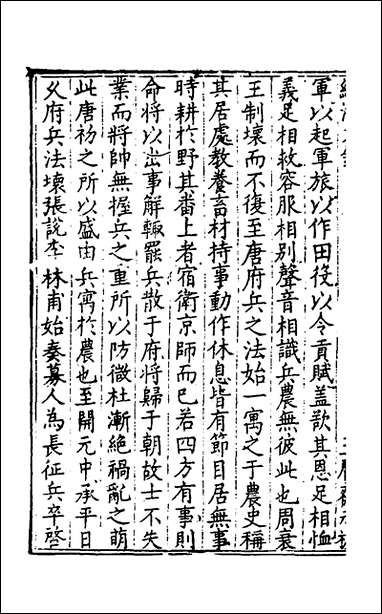 軍以起軍旅以作田役以令貢賦蓋欲其恩足相恤
義足相救容服相别聲音相識兵農無彼此也周衰
王制壞而不復至唐府兵之法始一寓之于農史稱
其居處教養畜材持事動作休息皆有節目居無事
時耕於野其番上者宿衛京師而已若四方有事則
命將以出事解輒罷兵散于府將歸于朝故士不失
業而將帥無握兵之重所以防微杜漸絕禍亂之萌
此唐初之所以盛由兵寓於農也至開元中承平日
乆府兵法壞張說李林甫始奏募人為長征兵卒啓